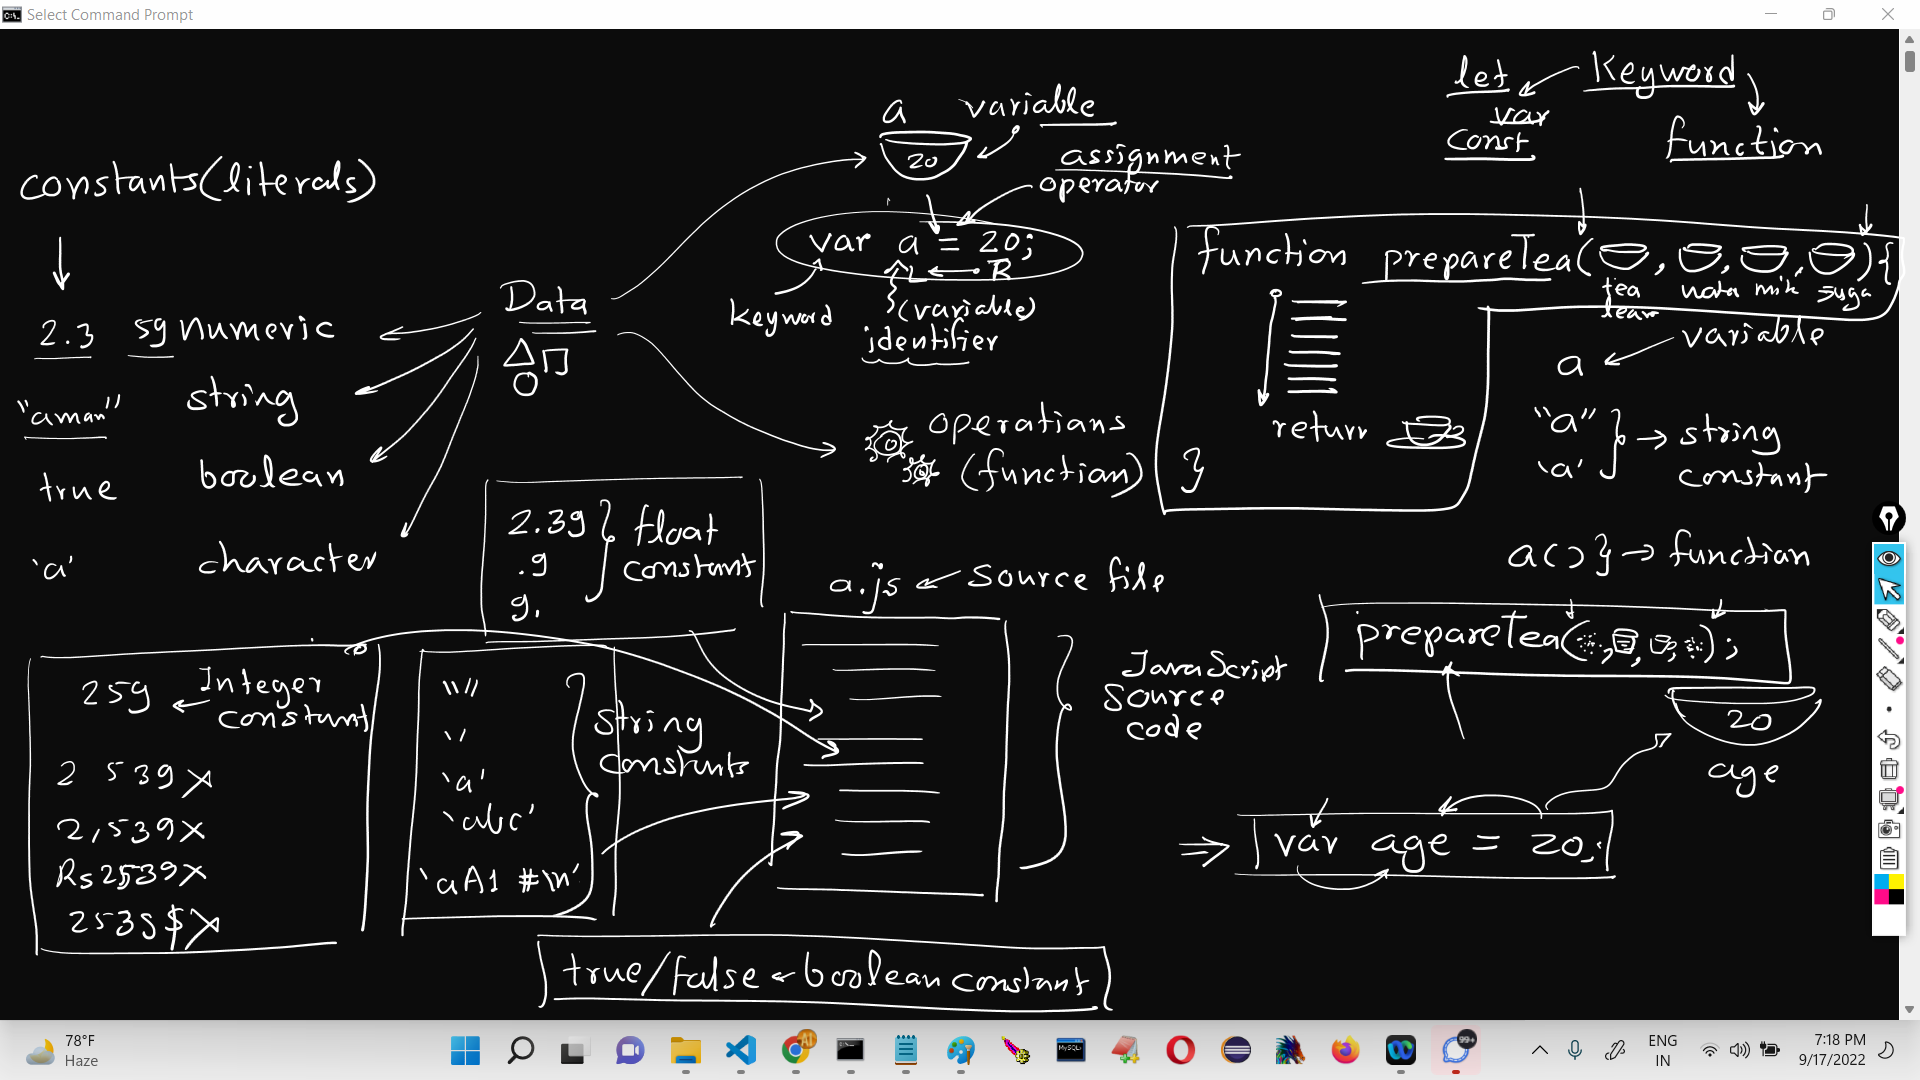 Select Command Prompt
constants(literals)
2.3 59 numeric
"aman" string
true boolean
'a' character
Data
a variable
20
assignment
operator
var a = 20;
L R
keyword
(variable)
identifier
operations
(function)
let Keyword
var
const function
function prepareTea( , , , ){
tea milk
return
}
variable
a
"a"
'a'
string
constant
a() } → function
prepareTea( , , , );
20
age
var age = 20;
2.39
.9
9.
float
constant
a.js source file
JavaScript
source
code
259 Integer
constant
2 539 x
2,539 x
Rs 2539 x
2539$ x
""
''
'a'
'abc'
'aA1 #\n'
string
constants
true/false boolean constant
78°F
Haze
99+
ENG
IN
7:18 PM
9/17/2022